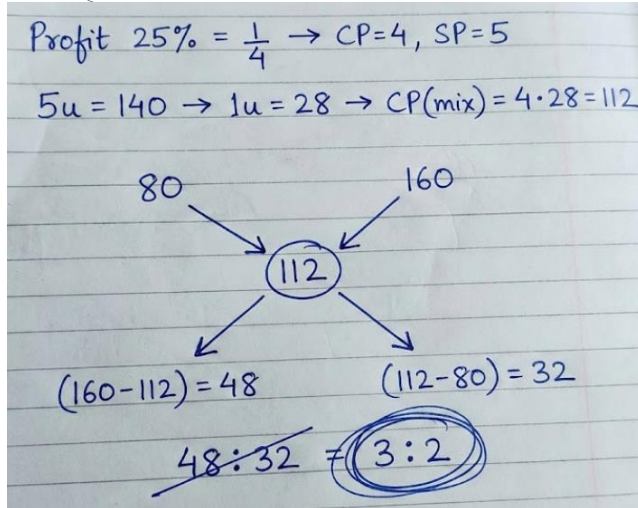 Profit 25% = 1/4 → CP=4, SP=5
5u = 140 → 1u = 28 → CP(mix) = 4·28 = 112
80 160
112
(160-112) = 48 (112-80) = 32
48:32 = 3:2